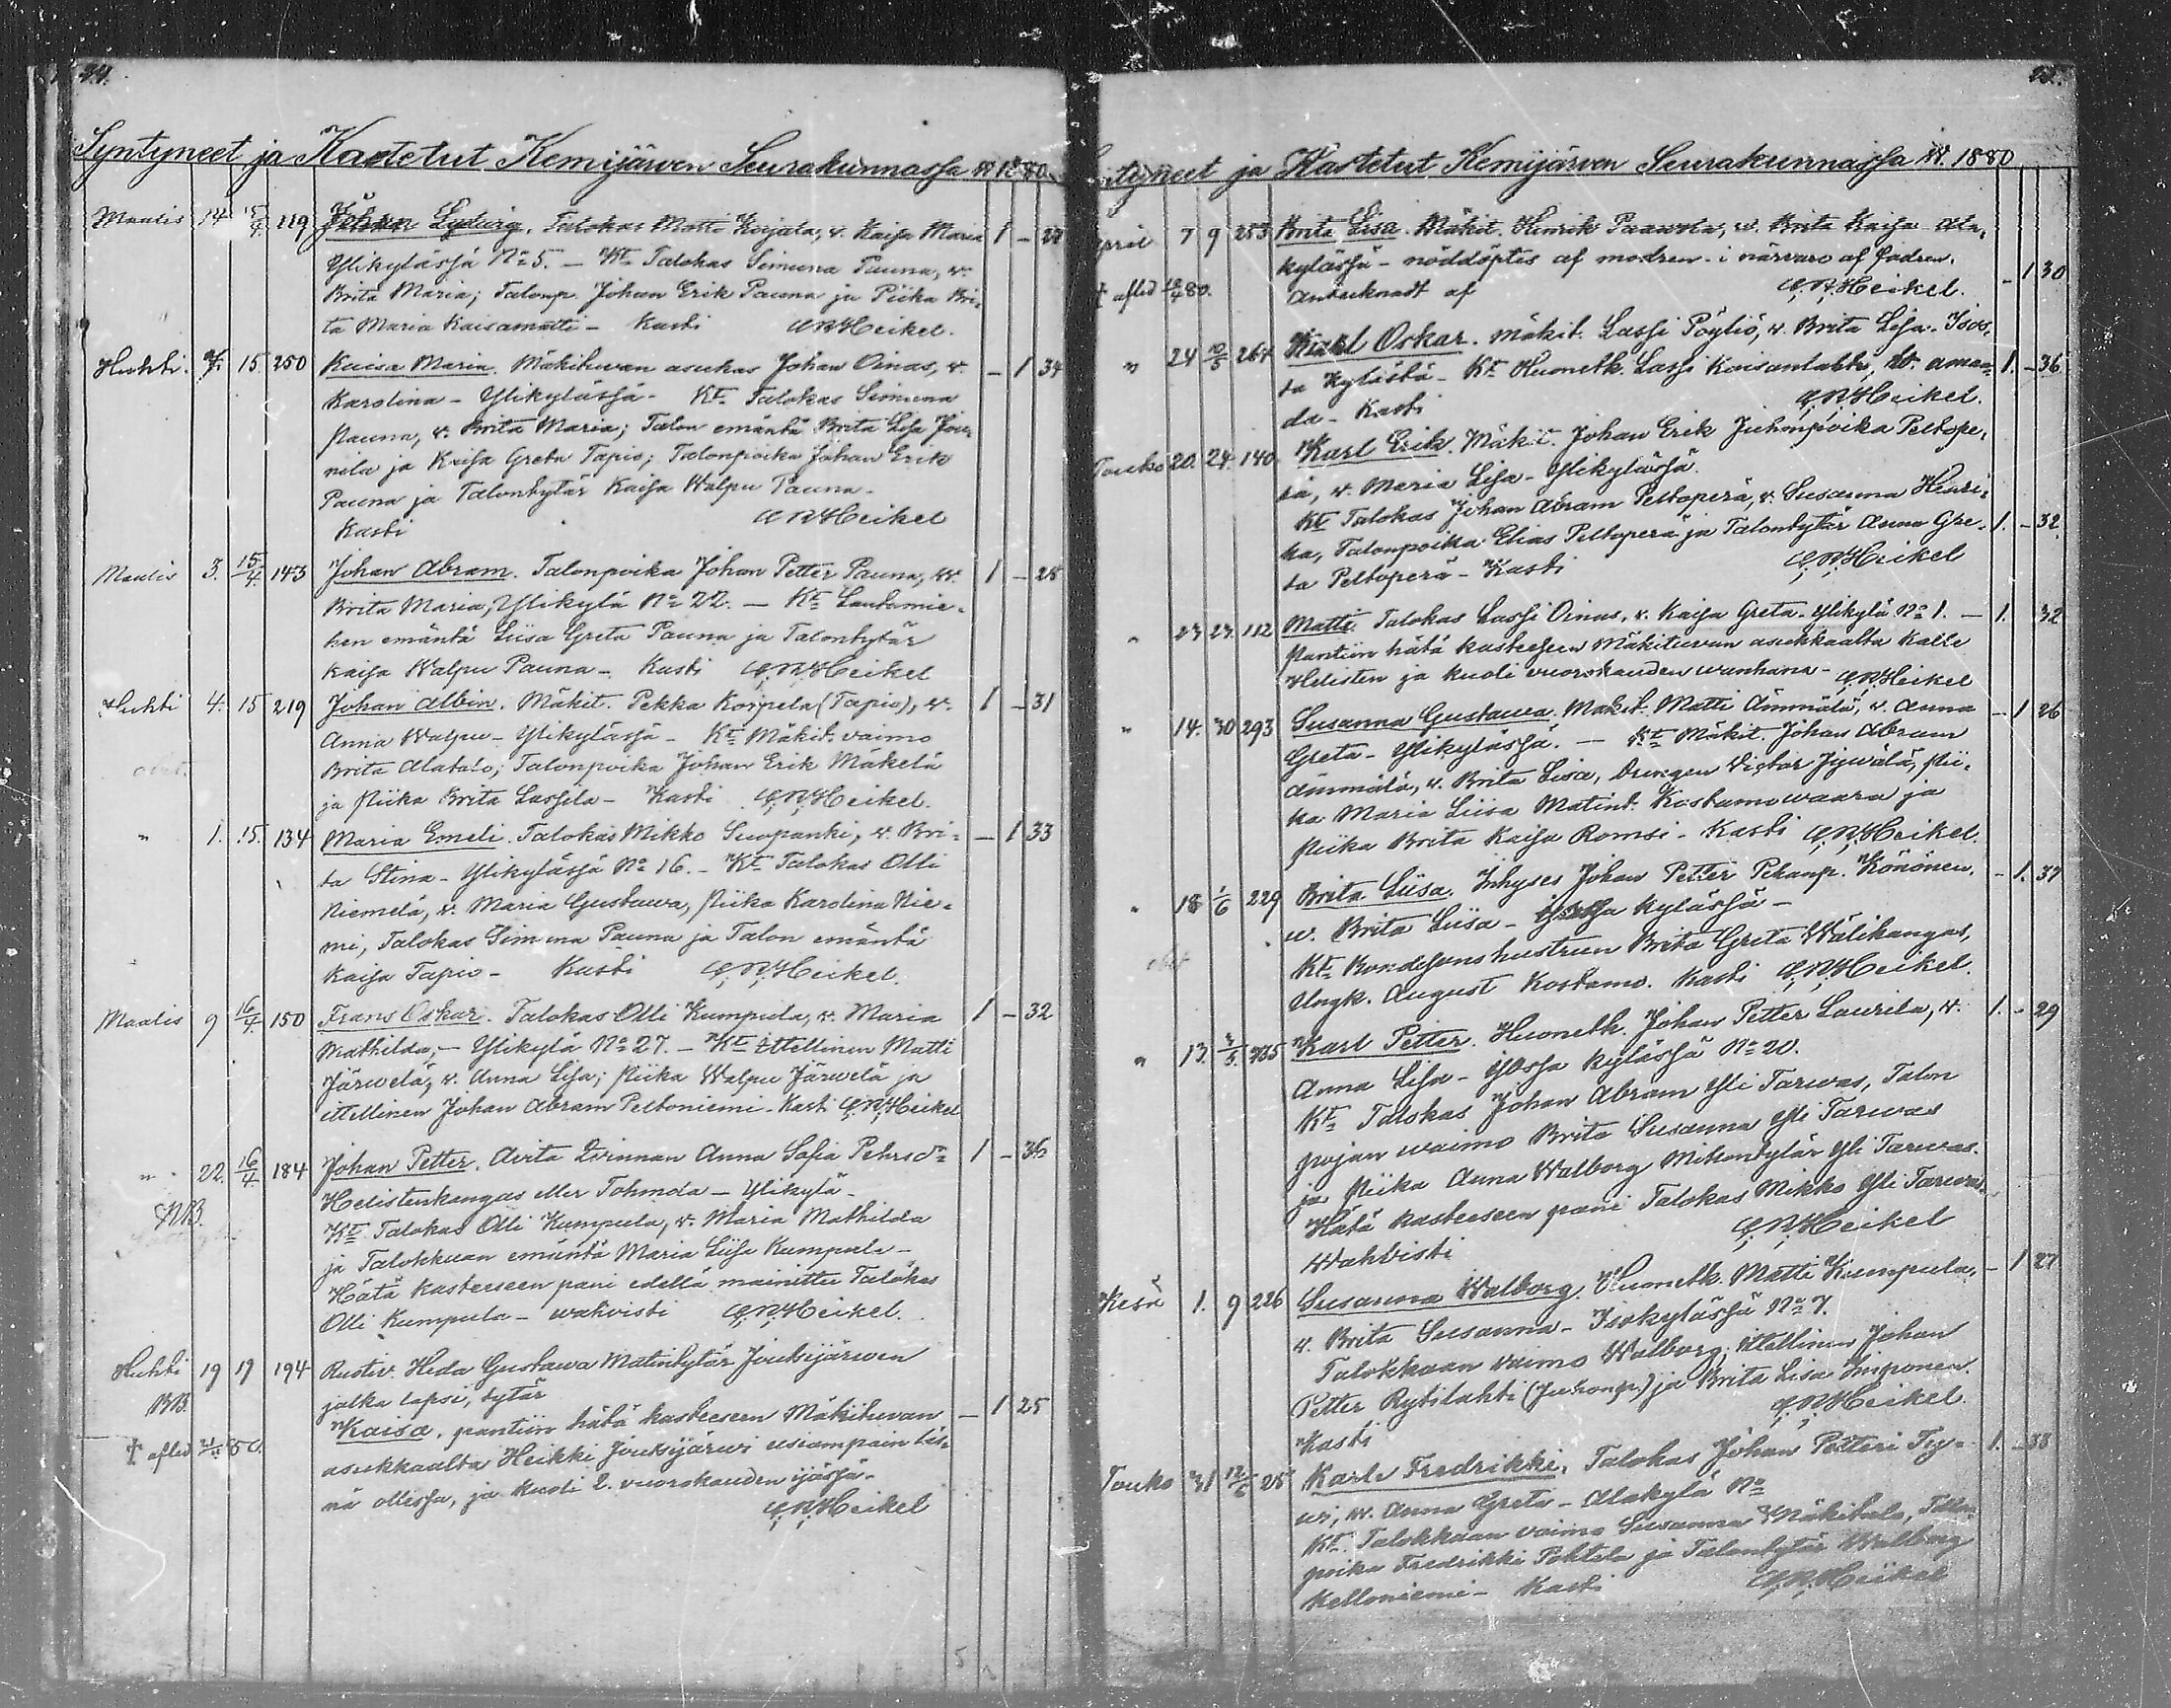 Syntyneet ja Kastetut Kemijärven Seurakunnassa w. 1880.
Maalis 14 15/4 119 Johan Ludvig, Talokas Matti Kerjala, v. Kaisa Maria 1 -
Ylikylässä No 5. - Kt. Talokas Simuna Pauna, v.
Brita Maria; Talonp. Johan Erik Pauna ja Piika Bri-
ta Maria Kaisamatti - Kasti C.R.Heikel.
Huhti. 15 250 Kaisa Maria. Mäkituvan asukas Johan Oinas, v. - 1 34
Karolina - Ylikylässä - Kt. Talokas Simuna
Pauna, v. Brita Maria; Talon emäntä Brita Lisa Jou-
nila ja Kaisa Greta Tapio; Talonpoika Johan Erik
Pauna ja Talontytär Kaisa Walpu Pauna -
Kasti C.R.Heikel
Maalis 3. 15/4 143 Johan Abram. Talonpoika Johan Petter Pauna, w. 1 - 25
Brita Maria, Ylikylä No 22. - Kt. Lautamie-
hen emäntä Liisa Greta Pauna ja Talontytär
Kaisa Walpu Pauna - Kasti C.R.Heikel
Huhti 4. 15 219 Johan Albin. Mäkit. Pekka Korpela (Tapio), v. 1 - 31
Anna Walpu - Ylikylässä - Kt. Mäkit. vaimo
Brita Alatalo; Talonpoika Johan Erik Mäkelä
ja Piika Brita Lassila - Kasti C.R.Heikel.
" 1. 15. 134 Maria Emeli. Talokas Mikko Suopanki, v. Bri- - 1 33
ta Stina - Ylikylässä No 16. - Kt. Talokas Olli
Niemelä, v. Maria Gustawa, Piika Karolina Nie-
mi, Talokas Simuna Pauna ja Talon emäntä
Kaisa Tapio - Kasti C.R.Heikel.
Maalis 9 16/4 150 Frans Oskar. Talokas Olli Kumpula, v. Maria 1 - 32
Mathilda, - Ylikylä No 27. - Kt. Itellinen Matti
Järwelä, v. Anna Lisa; Piika Walpu Järwelä ja
itellinen Johan Abram Peltoniemi - Kasti C.R.Heikel
" 22. 16/4 184 Johan Petter. Avita Qvinnan Anna Sofia Pehrsdr 1 - 36
Helistenkangas eller Tohmola - Ylikylä -
NB.
Kt. Talokas Olli Kumpula, v. Maria Mathilda
ja Talokkaan emäntä Maria Liisa Kumpula -
Hätä kasteeseen pani edellä mainittu Talokas
Olli Kumpula - wahvisti C.R.Heikel.
Huhti 19 19 194 Rustiv. Heda Gustawa Matintytär Jouksijärwen
jalka lapsi, tytär
NB.
Kaisa, pantiin hätä kasteeseen Mäkituwan - 1 25
† afled
asukkaalta Heikki Jouksijärwi useampain läs-
nä ollessa, ja kuoli 2. vuorokauden ijässä -
C.R.Heikel
Syntyneet ja Kastetut Kemijärven Seurakunnassa w. 1880
April 7 9 253 Brita Lisa. Mäkit. Henrik Paawola, w. Brita Kaisa Ala-
kylässä - nöddöptes af modren i närvaro af fadren. - 1 30
† afled
Antecknadt af C.R.Heikel.
" 24 10/5 264 Karl Oskar. Mäkit. Lassi Pöyliö, v. Brita Lisa - Isos-
ta kylästä - Kt. Huonetk. Lassi Kaisanlahti, w. Aman- 1. - 36
da - Kasti C.R.Heikel.
Touko 20. 24. 140 Karl Erik. Mäkit. Johan Erik Juhonpoika Peltope-
rä, v. Maria Lisa - Ylikylässä.
Kt. Talokas Johan Abram Peltoperä, v. Susanna Henri-
ka, Talonpoika Elias Peltoperä ja Talontytär Anna Gre- 1. - 32
ta Peltoperä - Kasti C.R.Heikel
" 23 23. 112 Matti. Talokas Lassi Oinas, v. Kaisa Greta - Ylikylä No 1. - 1. 32
Pantiin hätä kasteeseen Mäkituwan asukkaalta Kalle
Helisten ja kuoli vuorokauden wanhana - C.R.Heikel
" 14. 30 293 Susanna Gustawa. Mäkit. Matti Ämmälä, v. Anna - 1 26
Greta - Ylikylässä. - Kt. Mäkit. Johan Abram
Ämmälä, v. Brita Lisa, Drengen Victor Jywälä, Pii-
ka Maria Liisa Matint. Kostamowaara ja
Piika Brita Kaisa Romsi - Kasti C.R.Heikel.
" 18 1/6 229 Brita Liisa. Inhyses Johan Petter Pekanp. Könönen, - 1. 37
w. Brita Liisa - kylässä -
Kt. Bondesons hustrun Brita Greta Wälikangas,
Yngk. August Kostamo. Kasti C.R.Heikel.
" 13. Karl Petter. Huonetk. Johan Petter Laurila, v. 1. - 29
Anna Lisa - Isossa kylässä No 20.
Kt. Talokas Johan Abram Yli Tarwas, Talon
pojan waimo Brita Susanna Yli Tarwas
ja Piika Anna Walborg Mikontytär Yli Tarwas.
Hätä kasteeseen pani Talokas Mikko Yli Tarwas.
Wahvisti C.R.Heikel
Kesä 1. 9 226 Susanna Walborg. Huonetk. Matti Kumpula, - 1 27
v. Brita Susanna - Isokylässä No 7.
Talokkaan vaimo Walborg; itellinen Johan
Petter Rytilahti (Juhonp.) ja Brita Lisa Imponen.
Kasti C.R.Heikel.
Touko 31 12/6 25 Karle Fredrikki. Talokas Johan Petteri Ty- 1. - 33
wi, w. Anna Greta - Alakylä No
Kt. Talokkaan vaimo Susanna Mäkitalo, Talon-
poika Fredrikki Pohtila ja Talontytär Walborg
Kelloniemi - Kasti C.R.Heikel